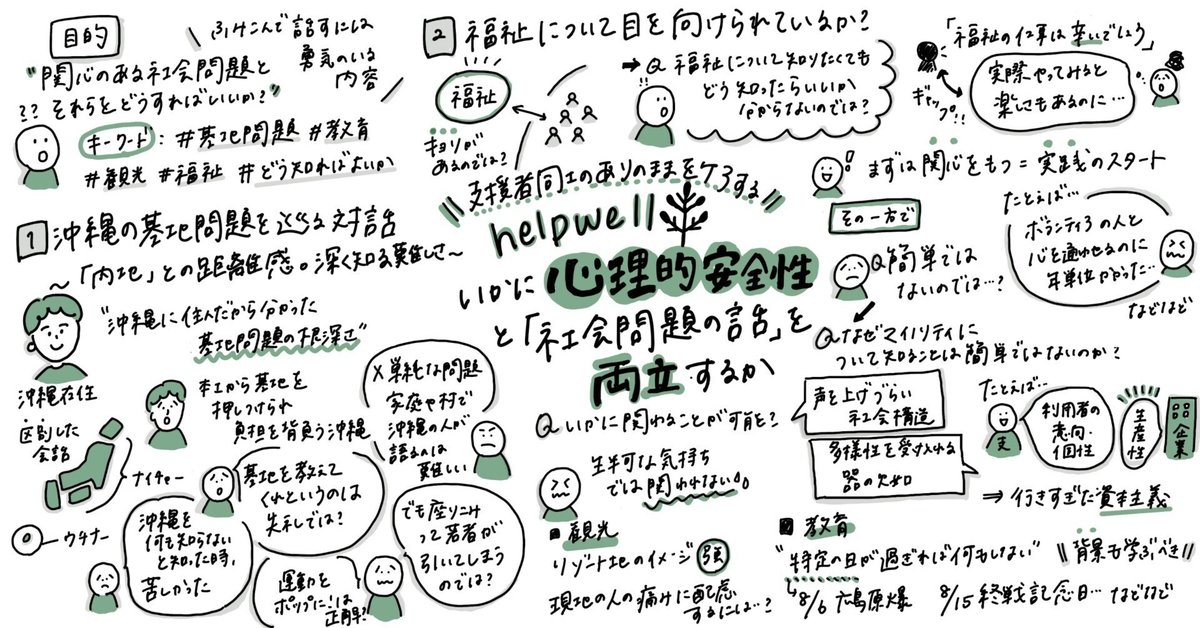 目的
ふみこんで話すには
勇気のいる
内容
"関心のある社会問題と
?? それらをどうすればいいか?"
キーワード : #基地問題 #教育
#観光 #福祉 #どう知ればよいか
1 沖縄の基地問題を巡る対話
～「内地」との距離感。深く知る難しさ～
"沖縄に住んだから分かった
基地問題の根深さ"
沖縄在住
区別した
会話
ナイチャー
ウチナー
本土から基地を
押しつけられ
負担を背負う沖縄
×単純な問題
家庭や村で
沖縄の人が
語るのは
難しい
基地を教えて
くれというのは
失礼では?
沖縄を
何も知らない
と知った時、
苦しかった
運動を
ポップには
正解?
でも座りこみ
って若者が
引いてしまう
のでは?
2 福祉について目を向けられているか?
福祉
キョリが
あるのでは?
➡ Q 福祉について知りたくても
どう知ったらいいか
分からないのでは?
「福祉の仕事は辛いでしょう」
ギャップ!!
実際やってみると
楽しさもあるのに…
まずは関心をもつ = 実践のスタート
その一方で
Q簡単では
ないのでは…?
たとえば…
ボランティアの人と
心を通わせるのに
年単位かかった…
などなど
Qなぜマイノリティに
ついて知ることは簡単ではないのか?
声を上げづらい
社会構造
多様性を受け入れる
器の欠如
たとえば…
支
利用者の
意向・
個性
生産性
企業
⇒ 行きすぎた資本主義
支援者同士のありのままをケアする
helpwell
いかに心理的安全性
と「社会問題の話」を
両立するか
Q いかに関わることが可能?
生半可な気持ち
では関われない。。
■観光
リゾート地のイメージ 強
現地の人の痛みに配慮
するには…?
■教育
"特定の日が過ぎれば何もしない"
背景も学ぶべき
8/6 広島原爆 8/15 終戦記念日… などなど